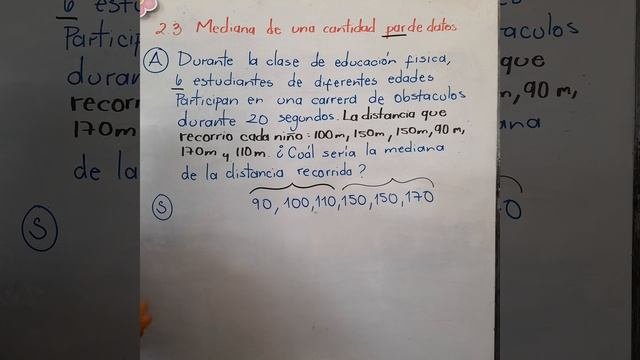 2.3 Mediana de una cantidad par de datos
A Durante la clase de educación fisica,
6 estudiantes de diferentes edades
Participan en una carrera de obstaculos
durante 20 segundos. La distancia que
recorrio cada niño: 100m, 150m, 150m, 90 m,
170m y 110m. ¿Cuál seria la mediana
de la distancia recorrida?
S 90, 100, 110, 150, 150, 170